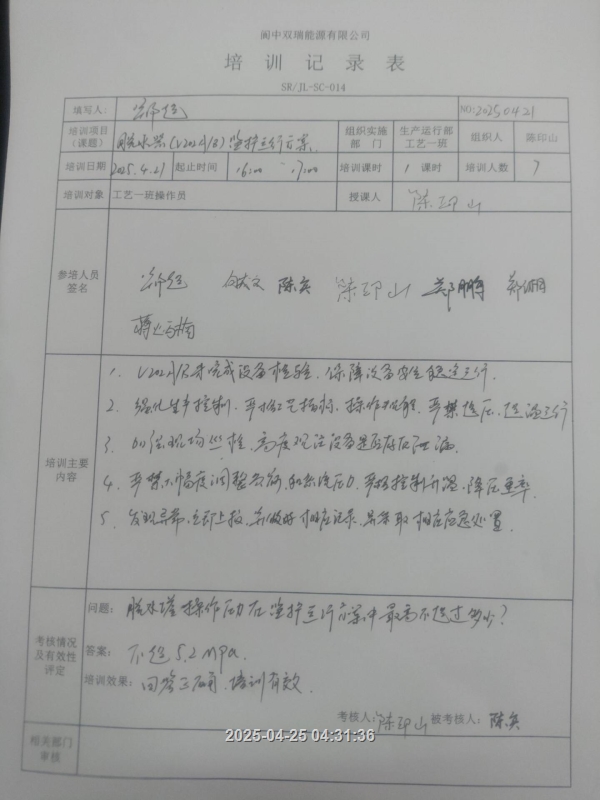 阆中双瑞能源有限公司
培 训 记 录 表
SR/JL-SC-014
填写人: NO:20250421
培训项目(课题) 脱水塔(V2021/B)监护运行方案. 组织实施部门 生产运行部工艺一班 组织人 陈印山
培训日期 2025.4.21 起止时间 16:00 - 17:00 培训课时 1 课时 培训人数 7
培训对象 工艺一班操作员 授课人 陈印山
参培人员签名 陈奂 陈印山 郑鹏
培训主要内容
1、V2021/B未完成设备检验, 保障设备安全稳定运行.
2、强化生产控制, 严格工艺指标, 操作, 严禁超压, 超温运行
3、加强现场巡检, 高度关注设备是否存在泄漏
4、严禁大幅度调整负荷和系统压力, 严格控制升温、降压速率.
5、发现异常, 立即上报, 并做好相应记录, 且采取相应应急处置.
考核情况及有效性评定
问题: 脱水塔操作压力在监护运行方案中最高不超过多少?
答案: 不超5.2MPa.
培训效果: 回答正确, 培训有效.
考核人: 陈印山 被考核人: 陈奂
相关部门审核
2025-04-25 04:31:36